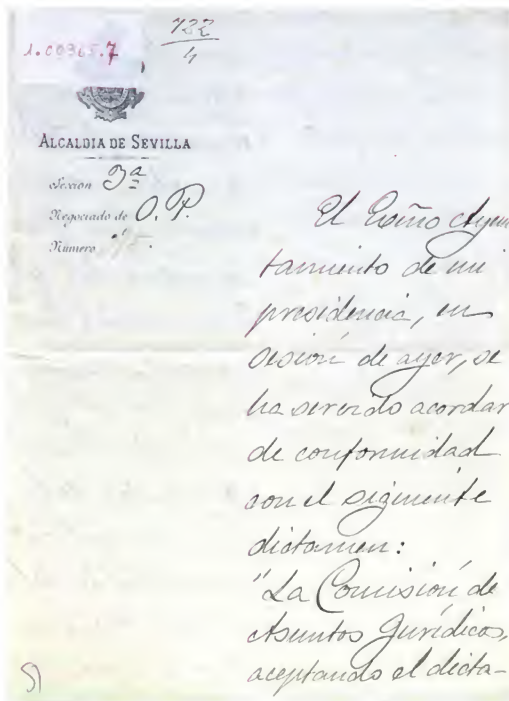 722
4
1.00365.7
ALCALDIA DE SEVILLA
Sección 3ª
Negociado de O. P.
Número
El Excmo Ayun
tamiento de mi
presidencia, en
sesión de ayer, se
ha servido acordar
de conformidad
con el siguiente
dictamen:
"La Comisión de
Asuntos Jurídicos,
aceptando el dicta-